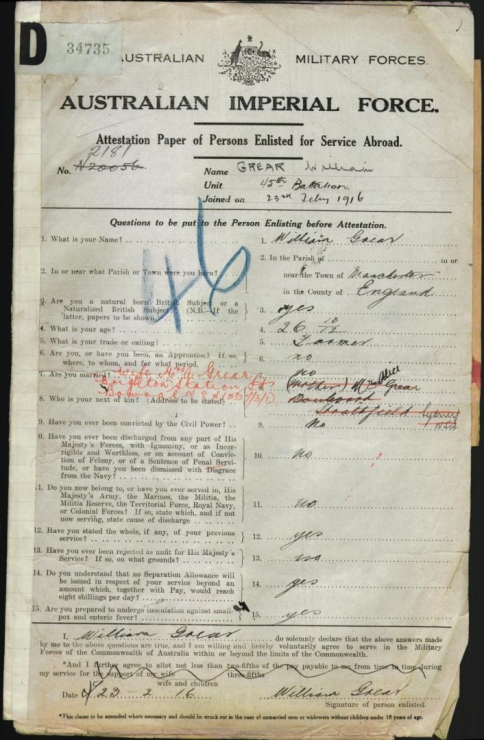 D 34735
AUSTRALIAN MILITARY FORCES.
AUSTRALIAN IMPERIAL FORCE.
Attestation Paper of Persons Enlisted for Service Abroad.
2181
No. N20056
Name GREAR William
Unit 45th Battalion
Joined on 23rd Feby 1916
Questions to be put to the Person Enlisting before Attestation.
46
1. What is your Name? 1. William Grear
2. In or near what Parish or Town were you born? 2. In the Parish of in or
near the Town of Manchester
in the County of England
3. Are you a natural born British Subject or a
Naturalized British Subject? (N.B.—If the
latter, papers to be shown). 3. yes
4. What is your age? 4. 26 10/12
5. What is your trade or calling? 5. Farmer
6. Are you, or have you been, an Apprentice? If so,
where, to whom, and for what period. 6. no
7. Are you married? 7. no
wife Mrs Grear
Station
8. Who is your next of kin? (Address to be stated) 8. (Mother) Mrs Alice Grear
Boulevard
Strathfield Sydney
NSW
9. Have you ever been convicted by the Civil Power? 9. no
10. Have you ever been discharged from any part of His
Majesty's Forces, with Ignominy, or as Incor-
rigible and Worthless, or on account of Convic-
tion of Felony, or of a Sentence of Penal Servi-
tude, or have you been dismissed with Disgrace
from the Navy? 10. no
11. Do you now belong to, or have you ever served in, His
Majesty's Army, the Marines, the Militia, the
Militia Reserve, the Territorial Force, Royal Navy,
or Colonial Forces? If so, state which, and if not
now serving, state cause of discharge 11. no
12. Have you stated the whole, if any, of your previous
service? 12. yes
13. Have you ever been rejected as unfit for His Majesty's
Service? If so, on what grounds? 13. no
14. Do you understand that no Separation Allowance will
be issued in respect of your service beyond an
amount which, together with Pay, would reach
eight shillings per day? 14. yes
15. Are you prepared to undergo inoculation against small-
pox and enteric fever? 15. yes
I, William Grear do solemnly declare that the above answers made
by me to the above questions are true, and I am willing and hereby voluntarily agree to serve in the Military
Forces of the Commonwealth of Australia within or beyond the limits of the Commonwealth.
*And I further agree to allot not less than two-fifths of the pay payable to me from time to time during
three-fifths
my service for the support of my wife
wife and children
Date 23-2-16 William Grear
Signature of person enlisted.
*This clause to be amended where necessary and should be struck out in the case of unmarried men or widowers without children under 18 years of age.